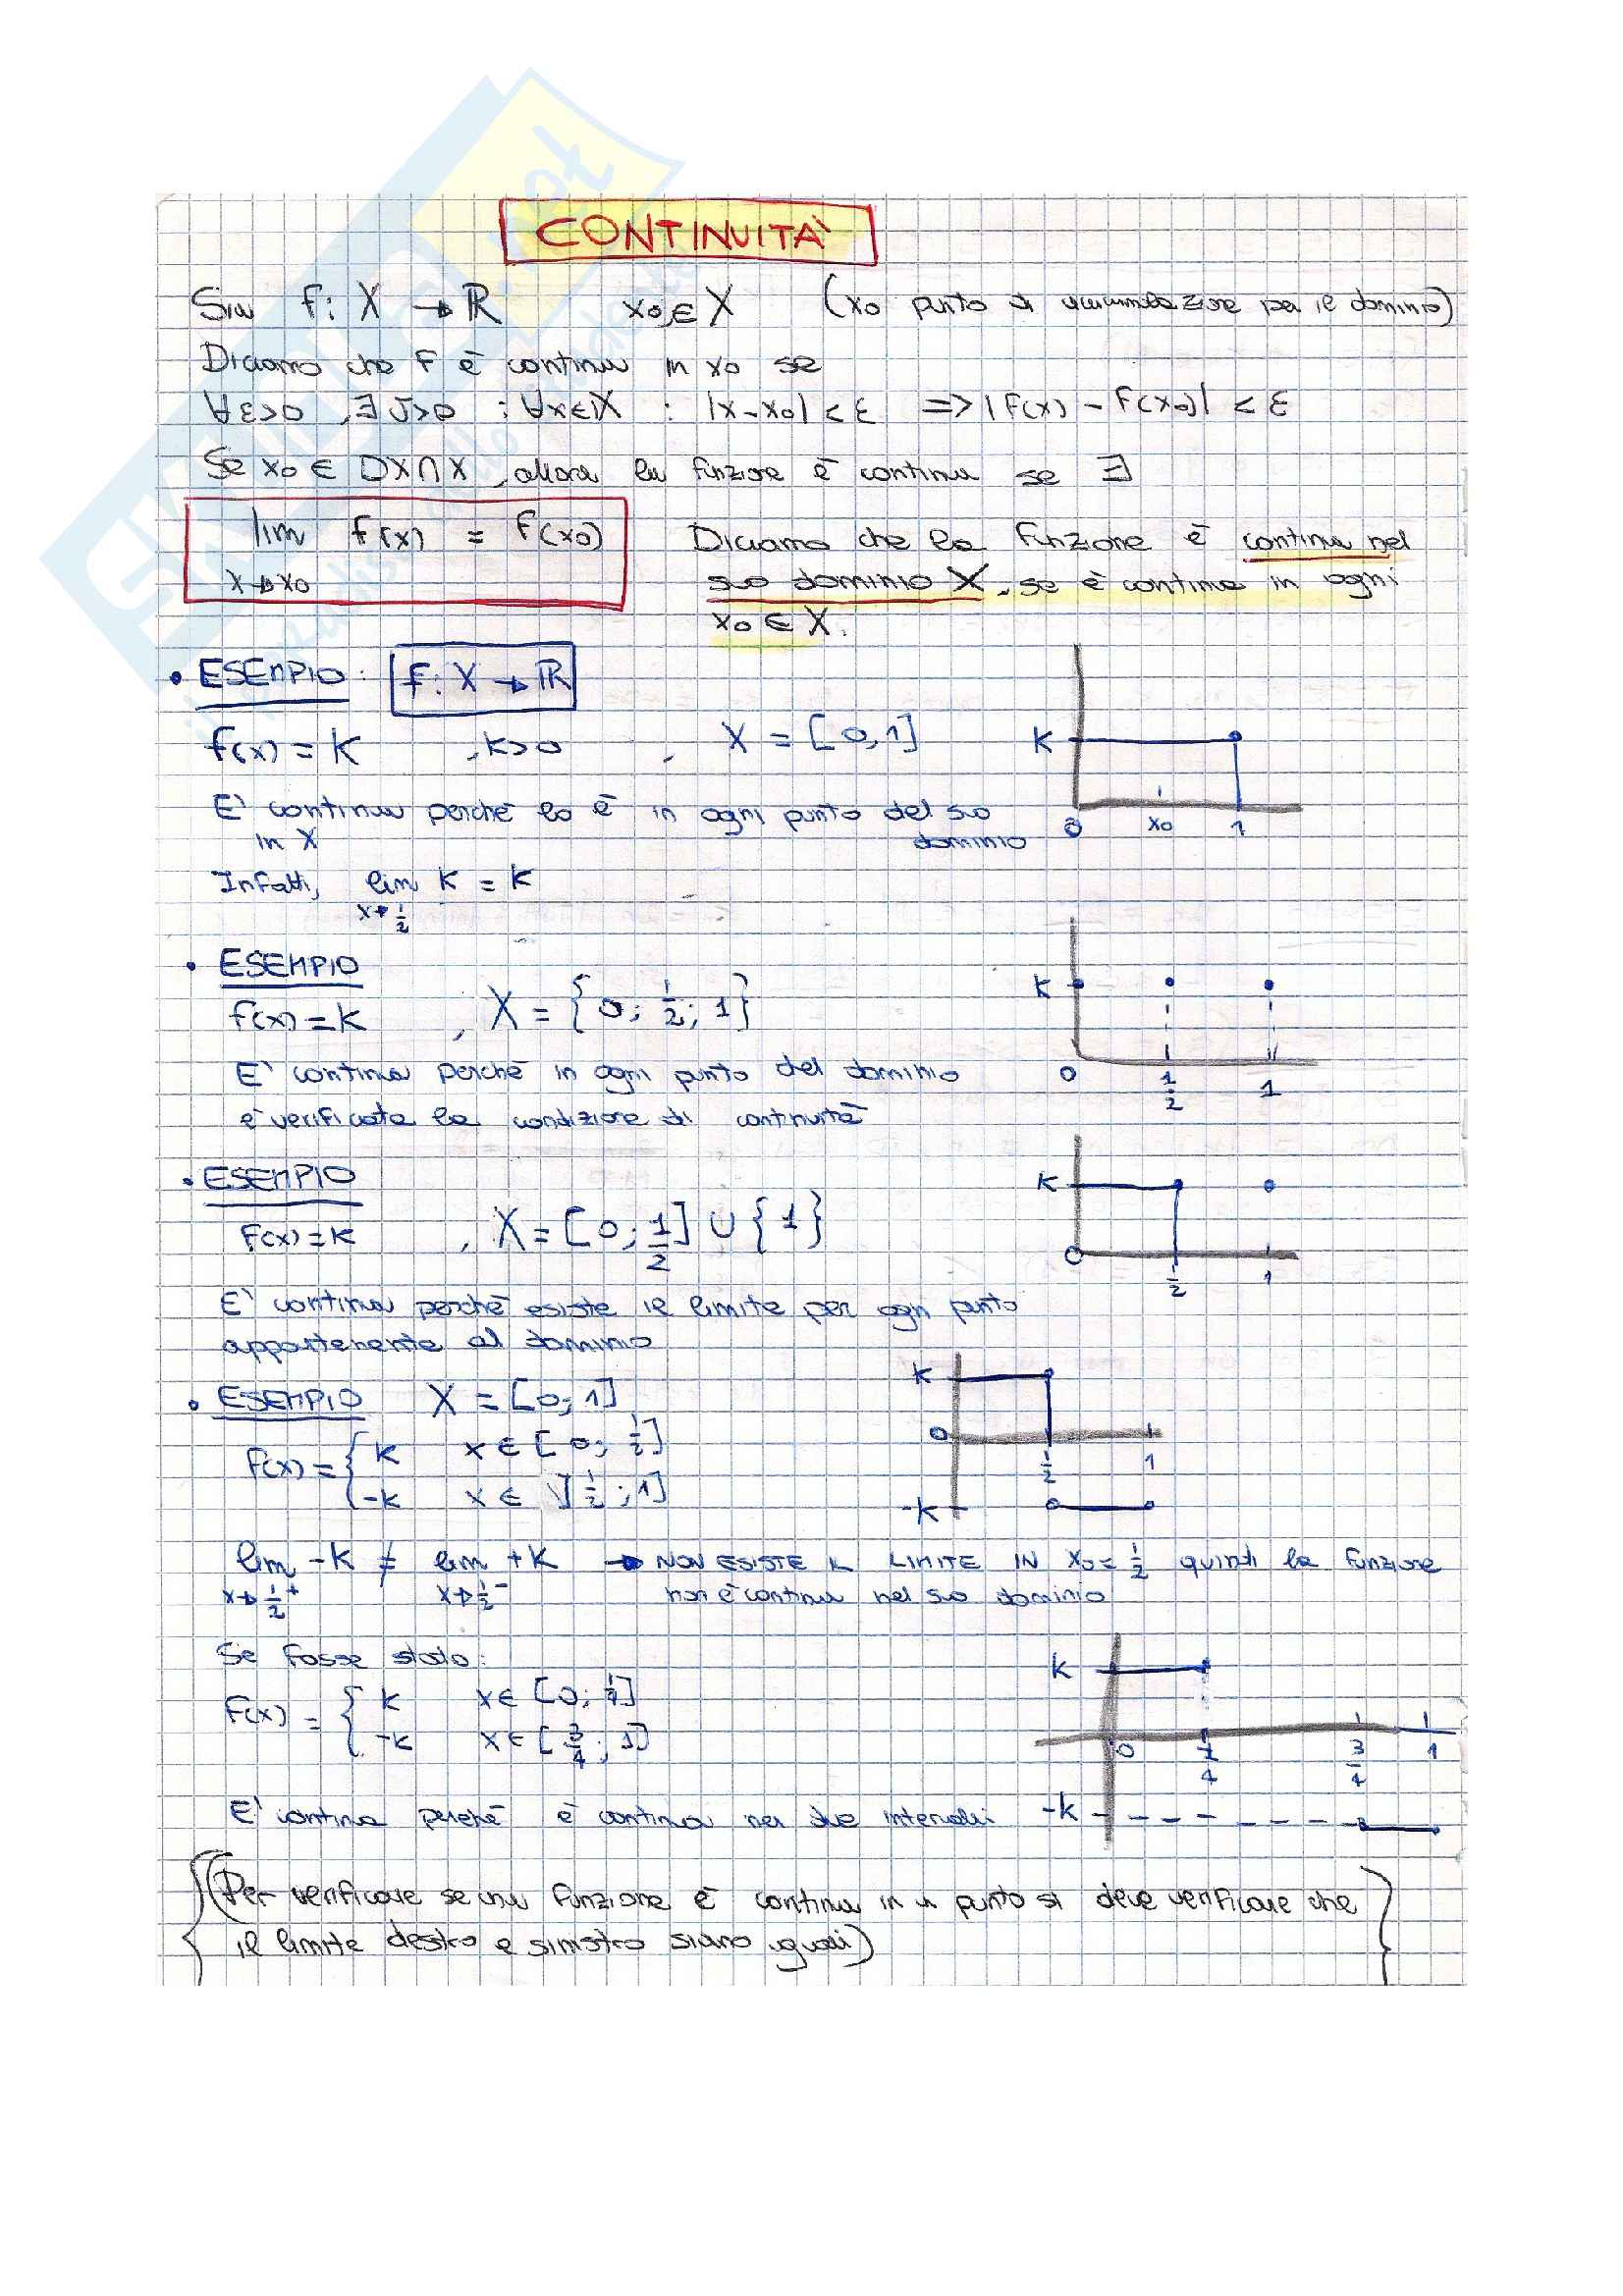 CONTINUITÀ
Sia f: X → ℝ x₀ ∈ X (x₀ punto di accumulazione per il dominio)
Diciamo che f è continua in x₀ se
∀ε>0 , ∃ δ>0 : ∀x∈X : |x-x₀| < ε => |f(x) - f(x₀)| < ε
Se x₀ ∈ DX∩X , allora la funzione è continua se ∃
lim f(x) = f(x₀)
x→x₀
Diciamo che la funzione è continua nel
suo dominio X, se è continua in ogni
x₀ ∈ X.
• ESEMPIO: f: X → ℝ
f(x) = K , K>0 , X = [0,1]
K
E' continua perchè lo è in ogni punto del suo
in X dominio
0 x₀ 1
Infatti, lim K = K
x→ 1/2
• ESEMPIO
f(x) = K , X = {0; 1/2; 1}
K
E' continua perchè in ogni punto del dominio
è verificata la condizione di continuità
0 1/2 1
• ESEMPIO
f(x) = K , X = [0; 1/2] ∪ {1}
K
0 1/2 1
E' continua perchè esiste il limite per ogni punto
appartenente al dominio
• ESEMPIO X = [0; 1]
f(x) = { K x ∈ [0; 1/2]
-K x ∈ ]1/2; 1]
K
0 1/2 1
-K
lim -K ≠ lim +K → NON ESISTE IL LIMITE IN x₀ = 1/2 quindi la funzione
x→ 1/2⁺ x→ 1/2⁻ non è continua nel suo dominio
Se fosse stato:
f(x) = { K x ∈ [0; 1/4]
-K x ∈ [3/4; 1]
K
0 1/4 3/4 1
-K
E' continua perchè è continua nei due intervalli
(Per verificare se una funzione è continua in un punto si deve verificare che
il limite destro e sinistro siano uguali)